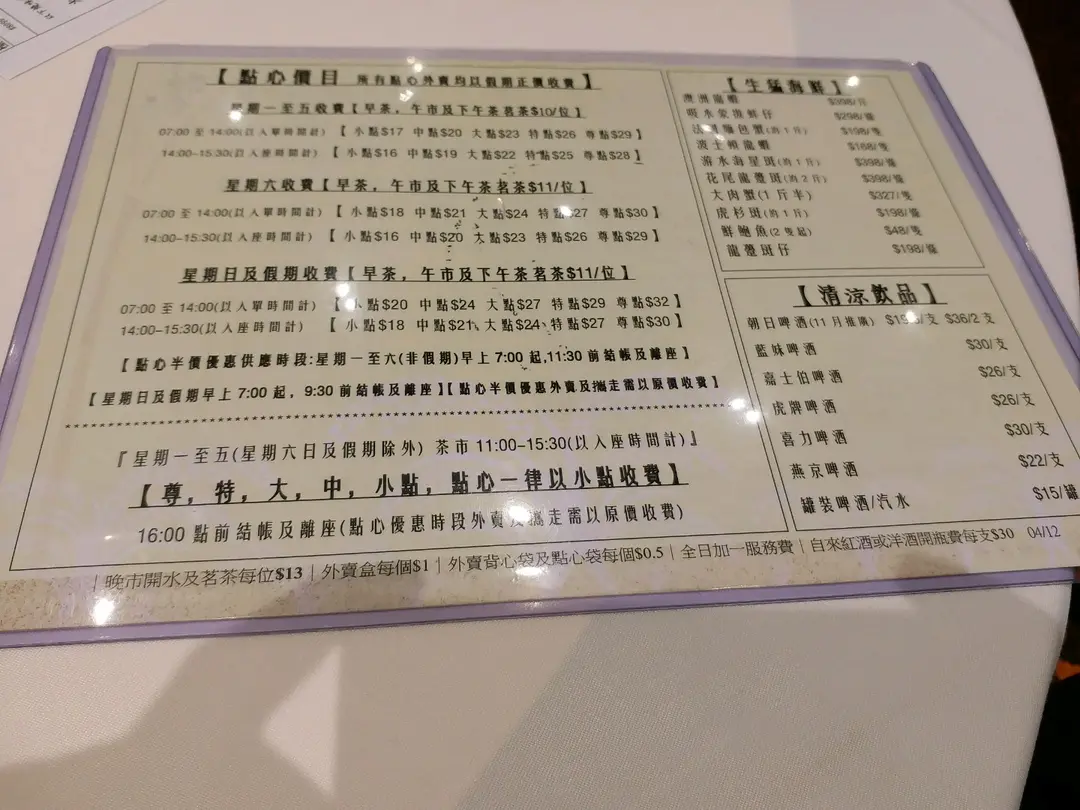 【點心價目 所有點心外賣均以假期正價收費】
星期一至五收費【早茶，午市及下午茶茗茶$10/位】
07:00 至 14:00(以入單時間計) 【小點$17 中點$20 大點$23 特點$26 尊點$29】
14:00-15:30(以入座時間計) 【小點$16 中點$19 大點$22 特點$25 尊點$28】
星期六收費【早茶，午市及下午茶茗茶$11/位】
07:00 至 14:00(以入單時間計) 【小點$18 中點$21 大點$24 特點$27 尊點$30】
14:00-15:30(以入座時間計) 【小點$16 中點$20 大點$23 特點$26 尊點$29】
星期日及假期收費【早茶，午市及下午茶茗茶$11/位】
07:00 至 14:00(以入單時間計) 【小點$20 中點$24 大點$27 特點$29 尊點$32】
14:00-15:30(以入座時間計) 【小點$18 中點$21 大點$24 特點$27 尊點$30】
【點心半價優惠供應時段:星期一至六(非假期)早上 7:00 起,11:30 前結帳及離座】
【星期日及假期早上 7:00 起，9:30 前結帳及離座】【點心半價優惠外賣及攜走需以原價收費】
『星期一至五(星期六日及假期除外) 茶市 11:00-15:30(以入座時間計)』
【尊，特，大，中，小點，點心一律以小點收費】
16:00 點前結帳及離座(點心優惠時段外賣及攜走需以原價收費)
【生猛海鮮】
澳洲龍蝦 $398/斤
吸水蒙海鮮仔 $298/條
法國麵包蟹(約1斤) $198/隻
波士頓龍蝦 $168/隻
游水海星斑(約1斤) $398/條
花尾龍躉斑(約2斤) $398/條
大肉蟹(1斤半) $327/隻
虎杉斑(約1斤) $198/條
鮮鮑魚(2隻起) $48/隻
龍躉斑仔 $198/條
【清涼飲品】
朝日啤酒(11月推廣) /支 $36/2支
藍妹啤酒 $30/支
嘉士伯啤酒 $26/支
虎牌啤酒 $26/支
喜力啤酒 $30/支
燕京啤酒 $22/支
罐裝啤酒/汽水 $15/罐
| 晚市開水及茗茶每位$13 | 外賣盒每個$1 | 外賣背心袋及點心袋每個$0.5 | 全日加一服務費 | 自來紅酒或洋酒開瓶費每支$30 04/12